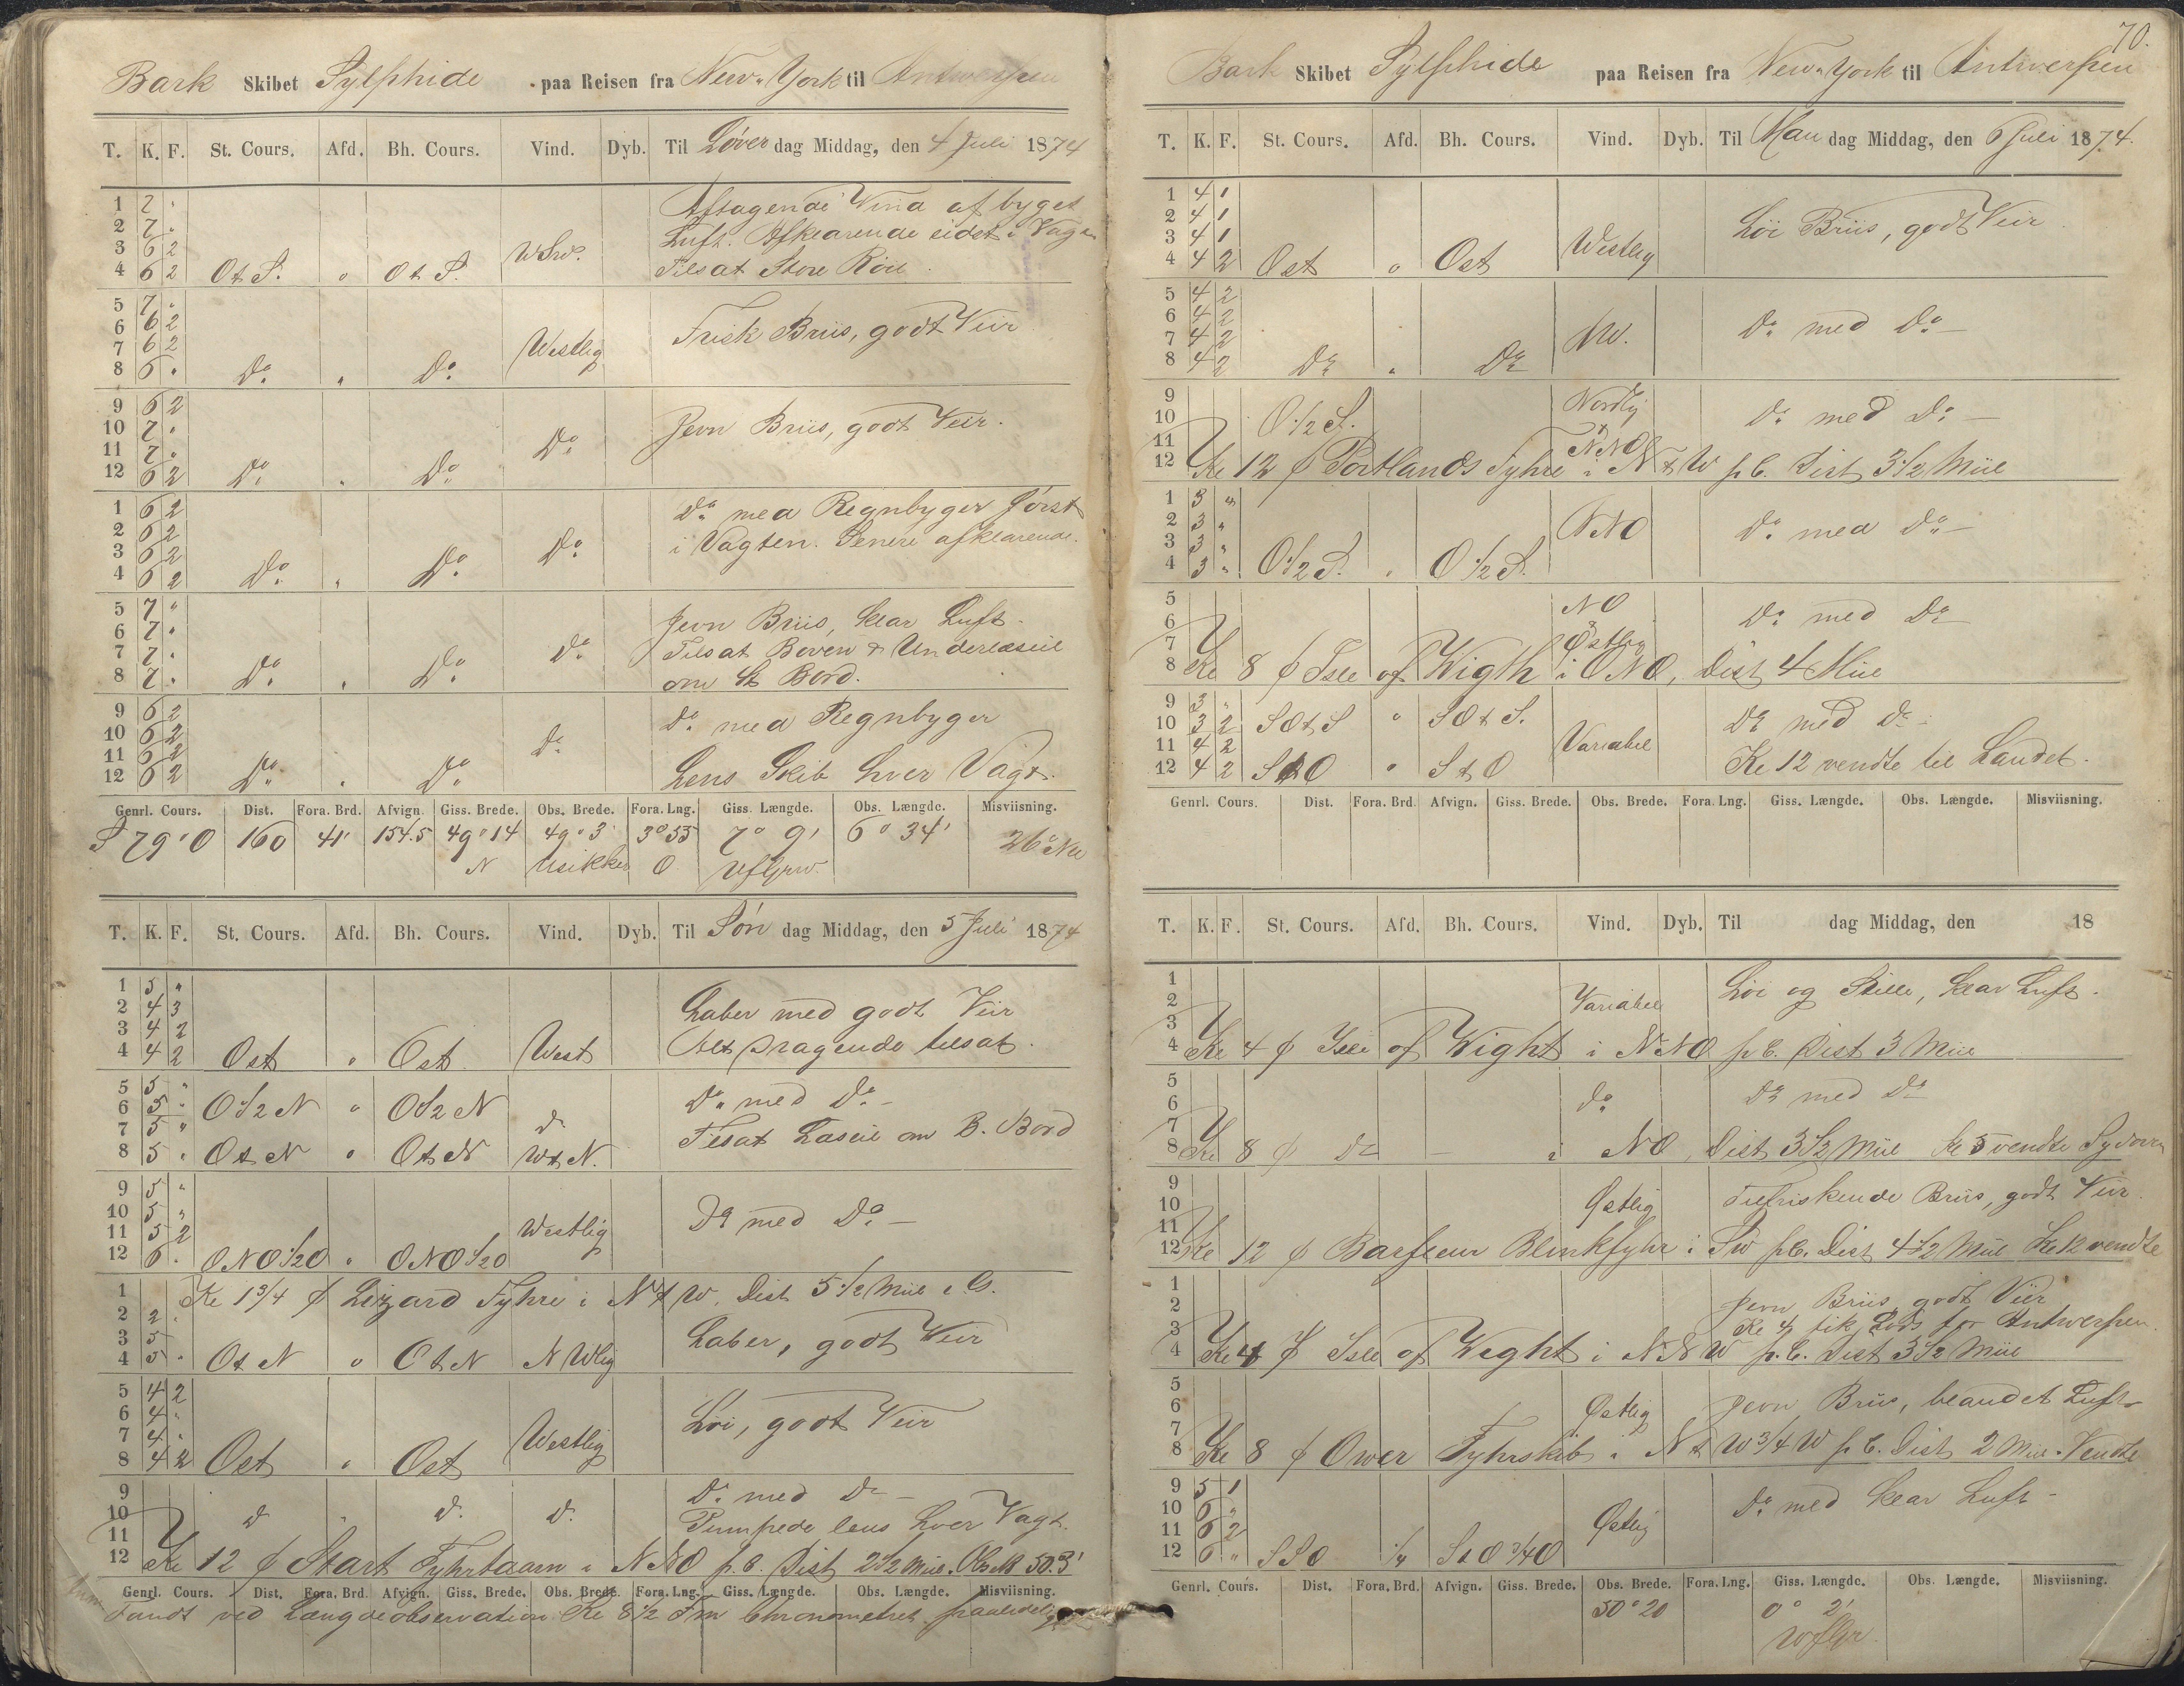 Bark Skibet Sylphide paa Reisen fra New-York til Antwerpen
T. K. F. St. Cours. Afd. Bh. Cours. Vind. Dyb. Til Löverdag Middag, den 4 Juli 1874
1 7 "
2 7 "
3 6 2
4 6 2 O t S. " O t S. WSW.
Aftagende Vind af byget
Luft. Afklarende sidst i Vagten
Tilsat Store Röil.
5 7 "
6 6 2
7 6 2
8 6 " Do " Do Westlig
Frisk Briis, godt Veir
9 6 2
10 7 "
11 7 "
12 6 2 Do " Do Do
Jevn Briis, godt Veir.
1 6 2
2 6 2
3 6 2
4 6 2 Do " Do Do
Do med Regnbyger först
i Vagten. Senere afklarende.
5 7 "
6 7 "
7 7 "
8 7 " Do " Do Do
Jevn Briis, klar Luft.
Tilsat Boven & Underlæseil
om St Bord.
9 6 2
10 6 2
11 6 2
12 6 2 Do " Do Do
Do med Regnbyger
Lens Skib hver Vagt.
Genrl. Cours. Dist. Fora. Brd. Afvign. Giss. Brede. Obs. Brede. Fora. Lng. Giss. Længde. Obs. Længde. Misviisning.
S 79° O 160 41' 154.5 49° 14 49° 3' 3° 55 7° 9' 6° 34' 26° NW
N usikker O
T. K. F. St. Cours. Afd. Bh. Cours. Vind. Dyb. Til Söndag Middag, den 5 Juli 1874
1 5 "
2 4 3
3 4 2
4 4 2 Ost " Ost West
Laber med godt Veir
Alt Dragende tilsat.
5 5 "
6 5 " O 1/2 N " O 1/2 N d
7 5 "
8 5 " O t N " O t N W t N.
Do med Do
Tilsat Læseil om B. Bord
9 5 "
10 5 "
11 5 2
12 6 " ONO 1/2 O " ONO 1/2 O Westlig
Do med Do
1 Kl 1 3/4 Lizard Fyhre i N t W. Dist 5 1/2 Miil
2 2 "
3 5
4 5 " O t N " O t N NWlig
Laber, godt Veir
5 4 2
6 4 "
7 4 "
8 4 2 Ost " Ost Westlig
Löi, godt Veir
9
10 d " d. d.
Do med Do
Pumpede lens hver Vagt.
11
12 Kl 12 Start Fyhrtaarn i NNO p.C. Dist 2 1/2 Miil. 50.3'
Genrl. Cours. Dist. Fora. Brd. Afvign. Giss. Brede. Obs. Brede. Fora. Lng. Giss. Længde. Obs. Længde. Misviisning.
Fandt ved Længdeobservation Kl 8 1/2 Fm Chronometret
70.
Bark Skibet Sylphide paa Reisen fra New-York til Antwerpen
T. K. F. St. Cours. Afd. Bh. Cours. Vind. Dyb. Til Mandag Middag, den 6 Juli 1874.
1 4 1
2 4 1
3 4 1
4 4 2 Ost " Ost Westlig
Löi Briis, godt Veir
5 4 2
6 4 2
7 4 2
8 4 2 Do " Do NW.
Do med Do
9
10 O 1/2 S. Nordlig
Do med Do
11 NNO
12 Kl 12 Portlands Fyhre i N t W p.C. Dist 3 1/2 Miil
1 3 "
2 3 "
3 3 "
4 3 " O 1/2 S. " O 1/2 S. NNO
Do med Do
5 NO
6
Do med Do
7 Östlig
8 Kl 8 Isle of Wigth i ONO, Dist 4 Miil
9 3 "
10 3 2 SO t S " SO t S.
11 4 2 Variabel
12 4 2 S t O " S t O
Do med Do
Kl 12 vendte til Landet.
Genrl. Cours. Dist. Fora. Brd. Afvign. Giss. Brede. Obs. Brede. Fora. Lng. Giss. Længde. Obs. Længde. Misviisning.
T. K. F. St. Cours. Afd. Bh. Cours. Vind. Dyb. Til dag Middag, den 18
1
2 Variabel
Löi og Stille, klar Luft.
3
4 Kl 4 Isle of Wight i NNO p.C. Dist 3 Miil
5
6 do
Do med Do
7
8 Kl 8 Do i NO, Dist 3 1/2 Miil Kl 5 vendte Sydover
9
10 Östlig
Tilfriskende Briis, godt Veir
11
12 Kl 12 Barfleur Blinkfyhr i SW p.C. Dist 4 1/2 Miil Kl 12 vendte
1
2
Jevn Briis, godt Veir
Kl 4 fik Lods for Antwerpen.
3
4 Kl 4 Isle of Weght i NNW p.C. Dist 3 1/2 Miil
5
6 Östlig
Jevn Briis, blandet Luft
7
8 Kl 8 Ower Fyhrskib i N t W 3/4 W p.C. Dist 2 Miil. Vendte
9 5 1
10 6 "
11 6 2
12 6 " SSO 1/4 S t O 3/4 O Östlig
Do med klar Luft
Genrl. Cours. Dist. Fora. Brd. Afvign. Giss. Brede. Obs. Brede. Fora. Lng. Giss. Længde. Obs. Længde. Misviisning.
50° 20 0° 2'